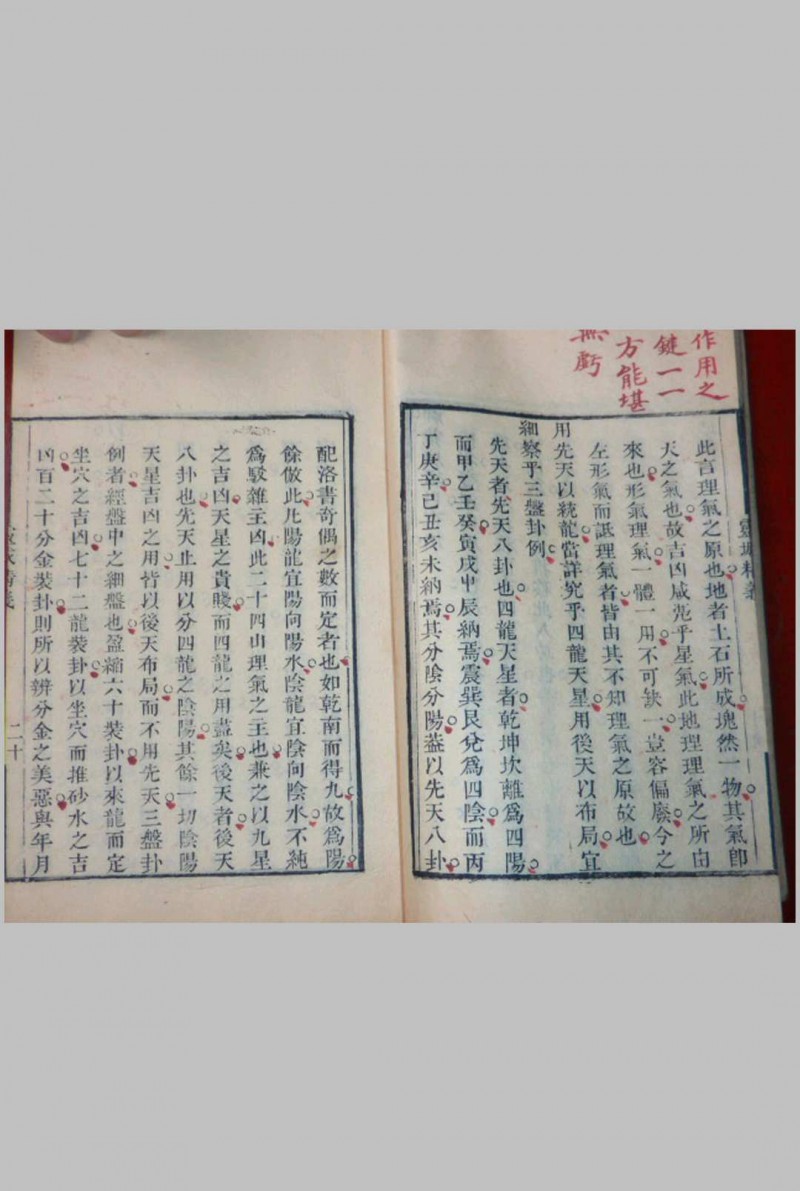 作用之
鍵一一
方能堪
無虧
靈城精義
此言理氣之原也地者土石所成塊然一物其氣卽
天之氣也故吉凶咸兆乎星氣此地理理氣之所由
來也形氣理氣一體一用不可缺一豈容偏廢今之
左形氣而詆理氣者皆由其不知理氣之原故也
用先天以統龍當詳究乎四龍天星用後天以布局宜
細察乎三盤卦例
先天者先天八卦也四龍天星者乾坤坎離爲四陽
而甲乙壬癸寅戌申辰納焉震巽艮兌爲四陰而丙
丁庚辛己丑亥未納焉其分陰分陽葢以先天八卦
配洛書奇偶之數而定者也如乾南而得九故爲陽
餘倣此凡陽龍宜陽向陽水陰龍宜陰向陰水不純
爲駁雜主凶此二十四山理氣之主也兼之以九星
之吉凶天星之貴賤而四龍之用盡矣後天者後天
八卦也先天止用以分四龍之陰陽其餘一切陰陽
天星吉凶之用皆以後天布局而不用先天三盤卦
例者經盤中之細盤也盈縮六十裝卦以來龍而定
坐穴之吉凶七十二龍裝卦以坐穴而推砂水之吉
凶百二十分金裝卦則所以辨分金之美惡與年月
二十